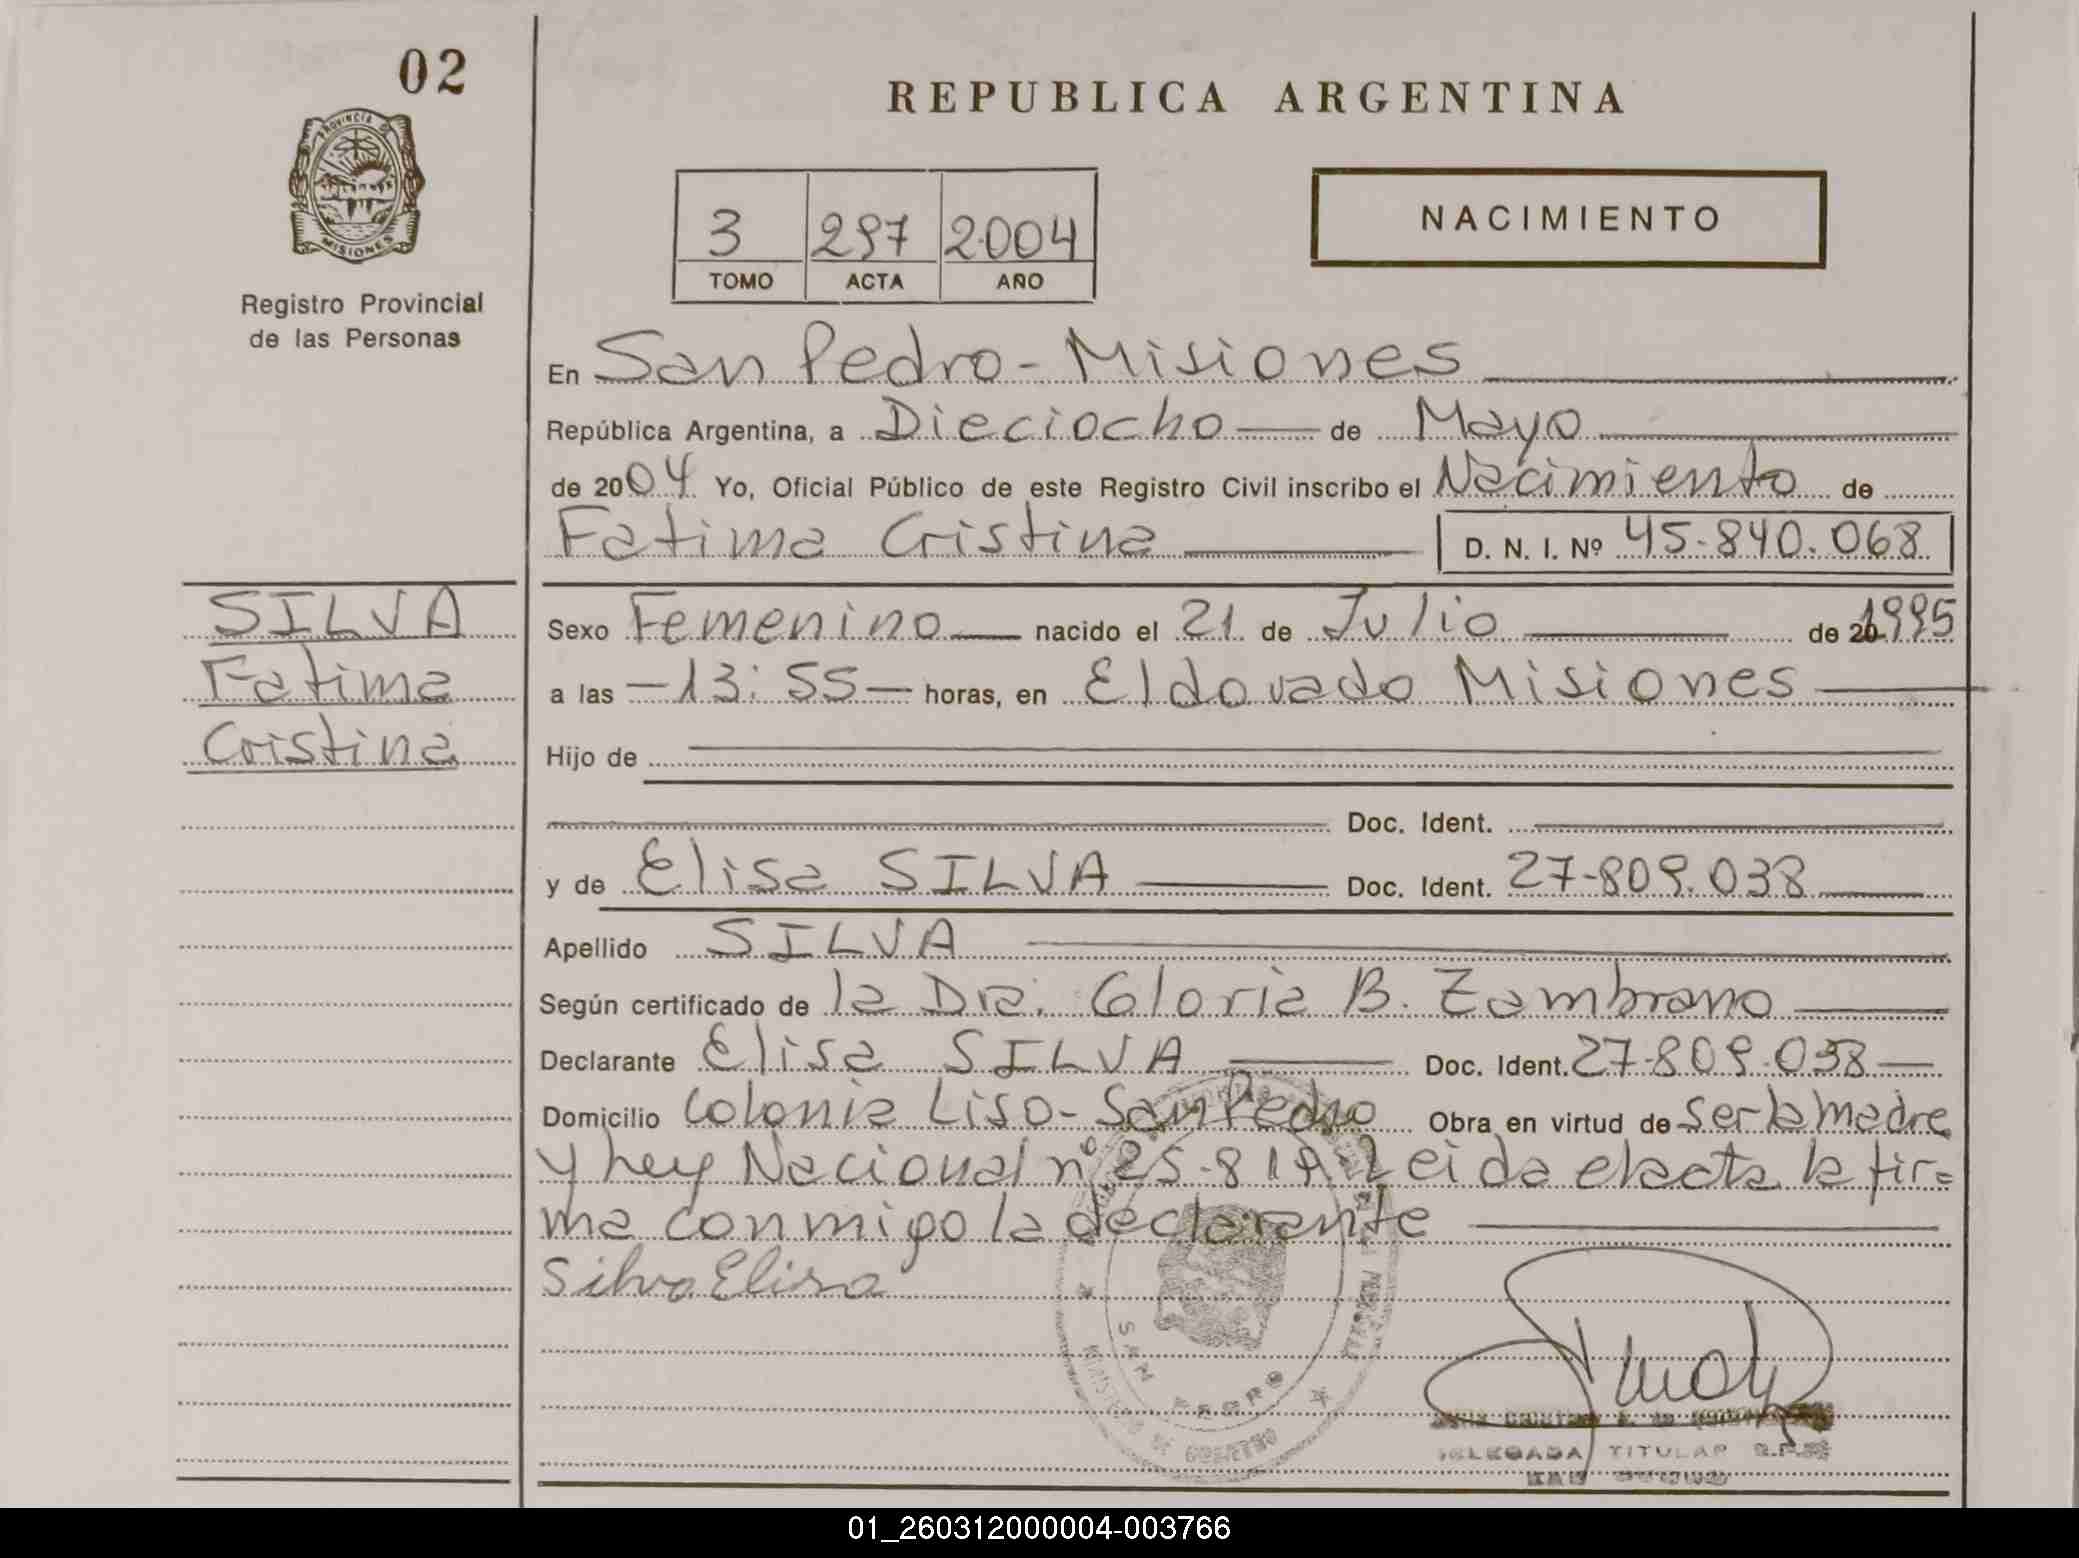 02
REPUBLICA ARGENTINA
PROVINCIA DE
MISIONES
3 297 2004
TOMO ACTA AÑO
NACIMIENTO
Registro Provincial
de las Personas
En San Pedro - Misiones
República Argentina, a Dieciocho de Mayo
de 2004 Yo, Oficial Público de este Registro Civil inscribo el Nacimiento de
Fatima Cristina D. N. I. Nº 45.840.068
SILVA
Fatima
Cristina
Sexo Femenino nacido el 21 de Julio de 20 1995
a las - 13:55 - horas, en Eldorado Misiones
Hijo de
Doc. Ident.
y de Elisa SILVA Doc. Ident. 27.809.038
Apellido SILVA
Según certificado de la Dra. Gloria B. Zambrano
Declarante Elisa SILVA Doc. Ident. 27.809.038
Domicilio Colonia Liso - San Pedro Obra en virtud de ser la madre
y Ley Nacional nº 25.819. Leida el acta la fir=
ma conmigo la declarante
Silva Elisa
SAN PEDRO
MINISTERIO DE GOBIERNO
DELEGADA TITULAR R.P.P.
SAN PEDRO
01_260312000004-003766